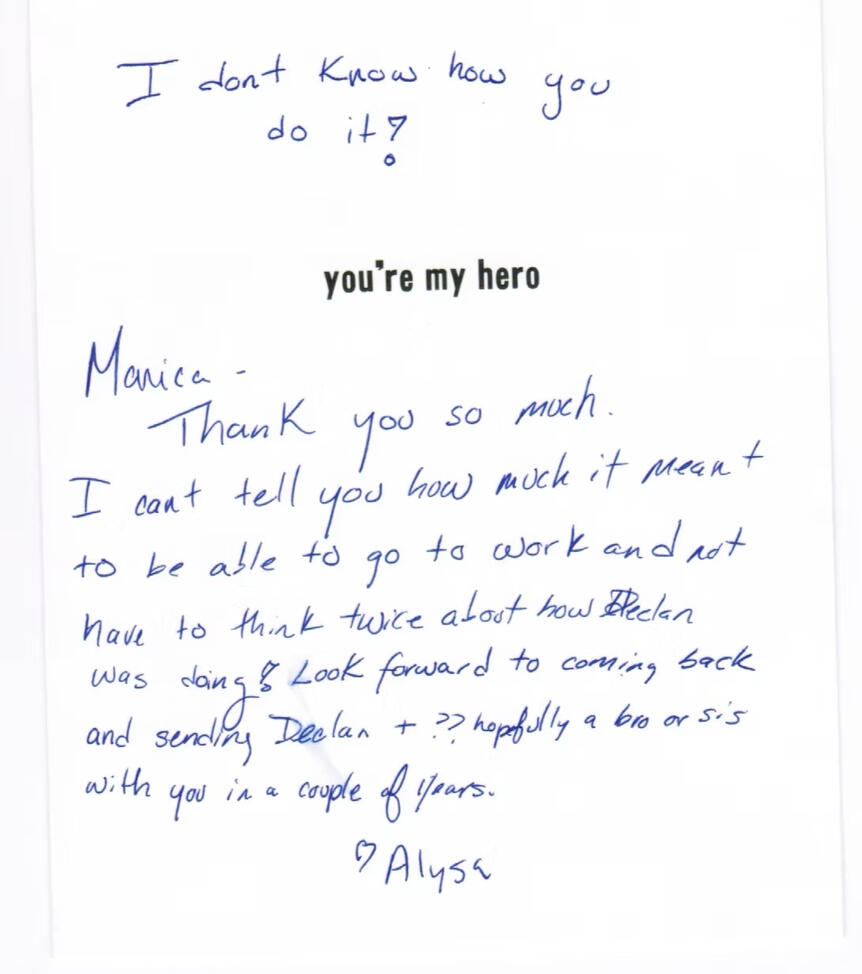 I dont Know how you
do it?
you're my hero
Marica -
Thank you so much.
I cant tell you how much it meant
to be able to go to work and not
have to think twice about how Declan
was doing! Look forward to coming back
and sending Declan + ?? hopefully a bro or sis
with you in a couple of years.
♡ Alysa